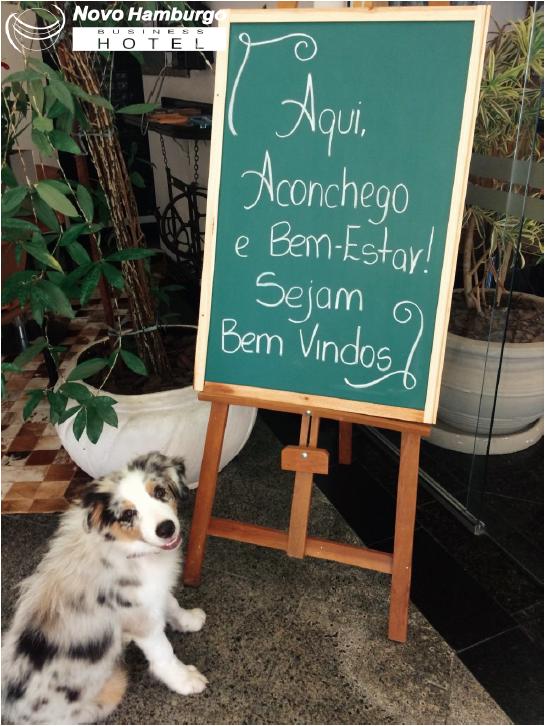 Novo Hamburgo
BUSINESS
HOTEL
Aqui,
Aconchego
e Bem-Estar!
Sejam
Bem Vindos